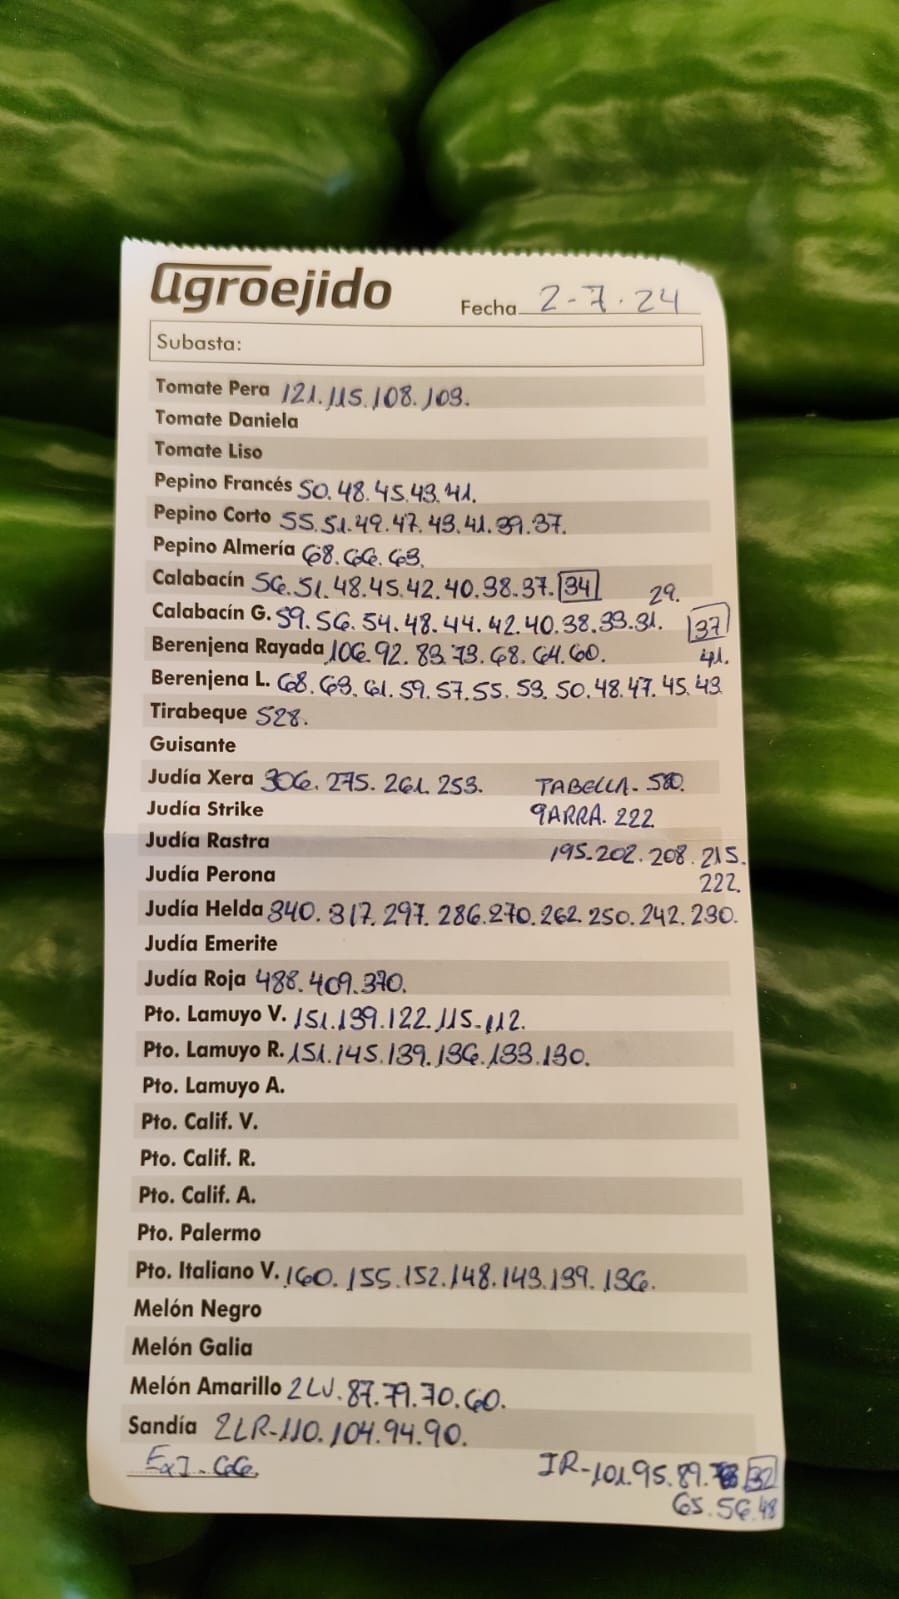 agroejido
Fecha 2-7.24
Subasta:
Tomate Pera 121.115.108.103.
Tomate Daniela
Tomate Liso
Pepino Francés 50.48.45.43.41.
Pepino Corto 55.51.49.47.43.41.39.37.
Pepino Almería 68.66.63.
Calabacín 56.51.48.45.42.40.38.37.34 29.
Calabacín G. 59.56.54.48.44.42.40.38.33.31. 37
Berenjena Rayada 106.92.83.73.68.64.60. 41.
Berenjena L. 68.63.61.59.57.55.53.50.48.47.45.43
Tirabeque 528.
Guisante
Judía Xera 306.275.261.253. TABELLA-
Judía Strike GARRA.222
Judía Rastra 195.202.208.215.
Judía Perona 222.
Judía Helda 340.317.297.286.270.262.250.242.230.
Judía Emerite
Judía Roja 488.409.370.
Pto. Lamuyo V. 151.139.122.115-112.
Pto. Lamuyo R. 151.145.139.136.133.130.
Pto. Lamuyo A.
Pto. Calif. V.
Pto. Calif. R.
Pto. Calif. A.
Pto. Palermo
Pto. Italiano V. 160.155.152.148.143.139.136.
Melón Negro
Melón Galia
Melón Amarillo 87.79.70.60.
Sandía 2LR-110.104.94.90.
66. IR-101.95.89. 32
65.56.48